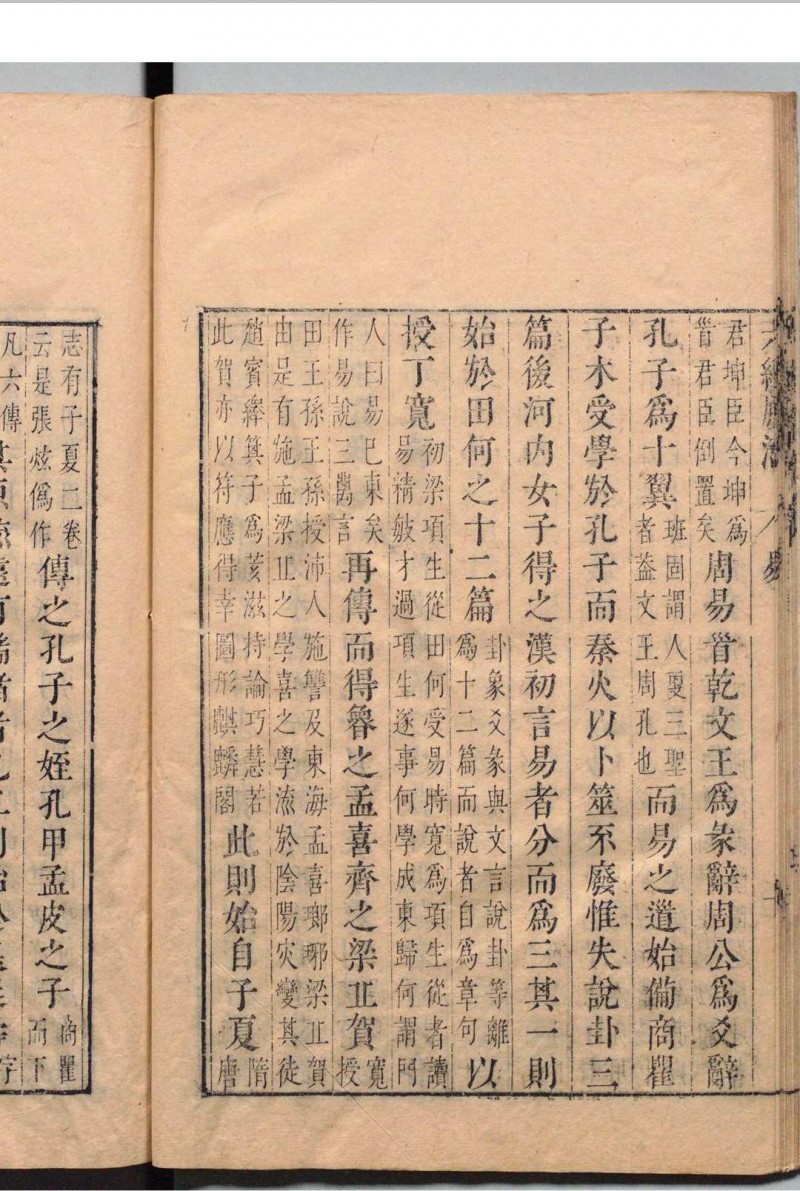 易
君坤臣今坤爲
𦣻君臣倒置矣
周易𦣻乾文王爲彖辭周公爲爻辭
孔子爲十翼
班固謂人更三聖
者葢文王周孔也
而易之道始僃商瞿
子木受學於孔子而秦火以卜筮不廢惟失說卦三
篇後河内女子得之漢初言易者分而爲三其一則
始於田何之十二篇
卦象爻彖與文言說卦等離
爲十二篇而說者自爲章句
以
授丁寬
初梁項生從田何受易時寬爲項生從者讀
易精敏才過項生遂事何學成東歸何謂門
人曰易已東矣
作易說三萬言
再傳而得魯之孟喜齊之梁丘賀
寬
授
田王孫王孫授沛人施讐及東海孟喜瑯琊梁丘賀
由是有施孟梁丘之學喜之學流於陰陽灾變其徒
趙賓繹箕子爲荄滋持論巧慧若
此賀亦以符應得幸圖形麒麟閣
此則始自子夏
隋
唐
志有子夏二卷
云是張炫僞作
傳之孔子之姪孔甲孟皮之子
商瞿
而下
凡六傳